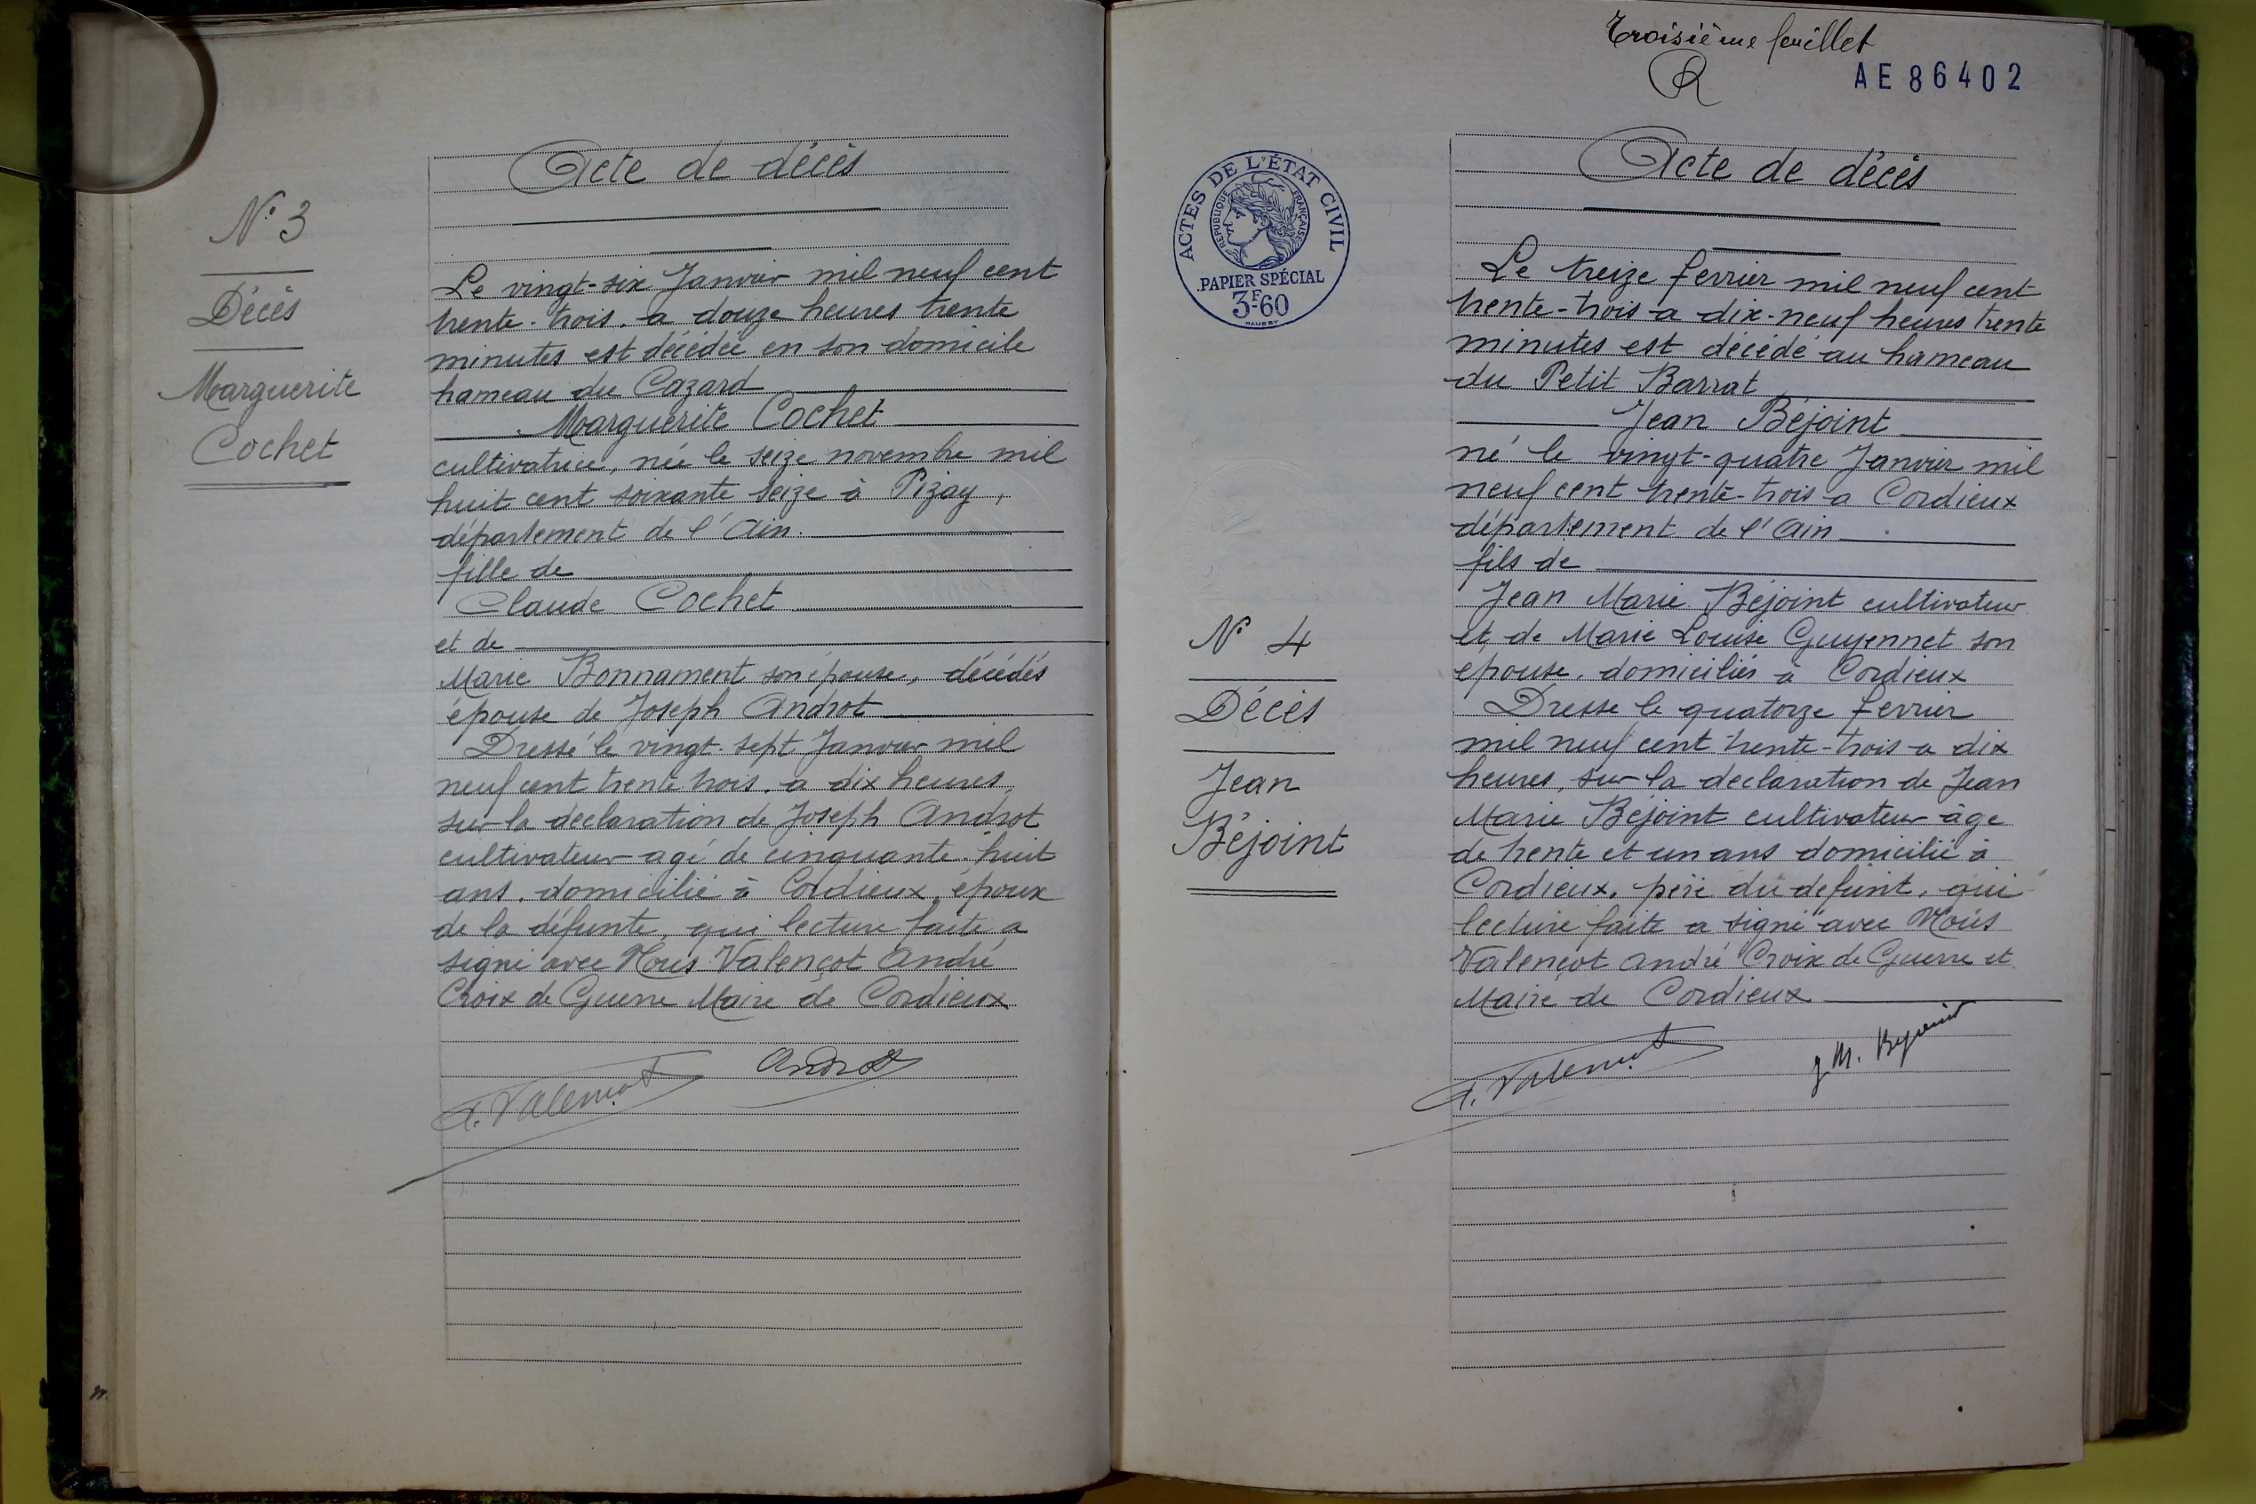 N° 3
Décès
Marguerite
Cochet
Acte de décès
Le vingt-six Janvier mil neuf cent
trente-trois. a douze heures trente
minutes est décédée en son domicile
hameau du Cazard
Marguerite Cochet
cultivatrice, née le seize novembre mil
huit cent soixante seize à Pizay,
département de l'Ain.
fille de
Claude Cochet
et de
Marie Bonnament son épouse, décédés
épouse de Joseph Androt
Dressé le vingt-sept Janvier mil
neuf cent trente trois. a dix heures,
sur la déclaration de Joseph Androt
cultivateur agé de cinquante-huit
ans. domicilié à Cordieux, époux
de la défunte, qui lecture faite a
signé avec Nous Valençot André
Croix de Guerre Maire de Cordieux
A. Valençot
Androt
Troisième feuillet
AE 86402
ACTES DE L'ÉTAT CIVIL
RÉPUBLIQUE FRANÇAISE
PAPIER SPÉCIAL
3F-60
N° 4
Décès
Jean
Béjoint
Acte de décès
Le treize fevrier mil neuf cent
trente-trois a dix-neuf heures trente
minutes est décédé au hameau
du Petit Barrat
Jean Béjoint
né le vingt-quatre Janvier mil
neuf cent trente-trois a Cordieux
département de l'Ain
fils de
Jean Marie Béjoint cultivateur
et de Marie Louise Guyennet son
epouse. domiciliés à Cordieux
Dresse le quatorze fevrier
mil neuf cent trente-trois a dix
heures, sur la declaration de Jean
Marie Béjoint cultivateur âge
de trente et un ans domicilié à
Cordieux. père du defunt. qui
lecture faite a signé avec Nous
Valençot André Croix de Guerre et
Maire de Cordieux
A. Valençot
J. M. Bejoint